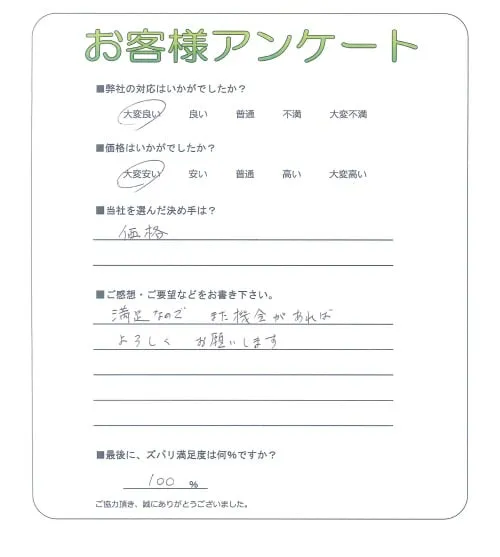 お客様アンケート
■弊社の対応はいかがでしたか？
大変良い 良い 普通 不満 大変不満
■価格はいかがでしたか？
大変安い 安い 普通 高い 大変高い
■当社を選んだ決め手は？
価格
■ご感想・ご要望などをお書き下さい。
満足なので また機会があれば
よろしく お願いします
■最後に、ズバリ満足度は何%ですか？
100 %
ご協力頂き、誠にありがとうございました。